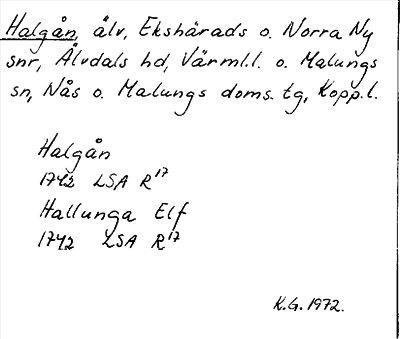 Halgån, älv, Ekshärads o. Norra Ny
snr, Älvdals hd, Värml.l. o. Malungs
sn, Nås o. Malungs doms. tg, Kopp.l.
Halgån
1742 LSA R¹⁷
Hallunga Elf
1742 LSA R¹⁷
K.G. 1972.